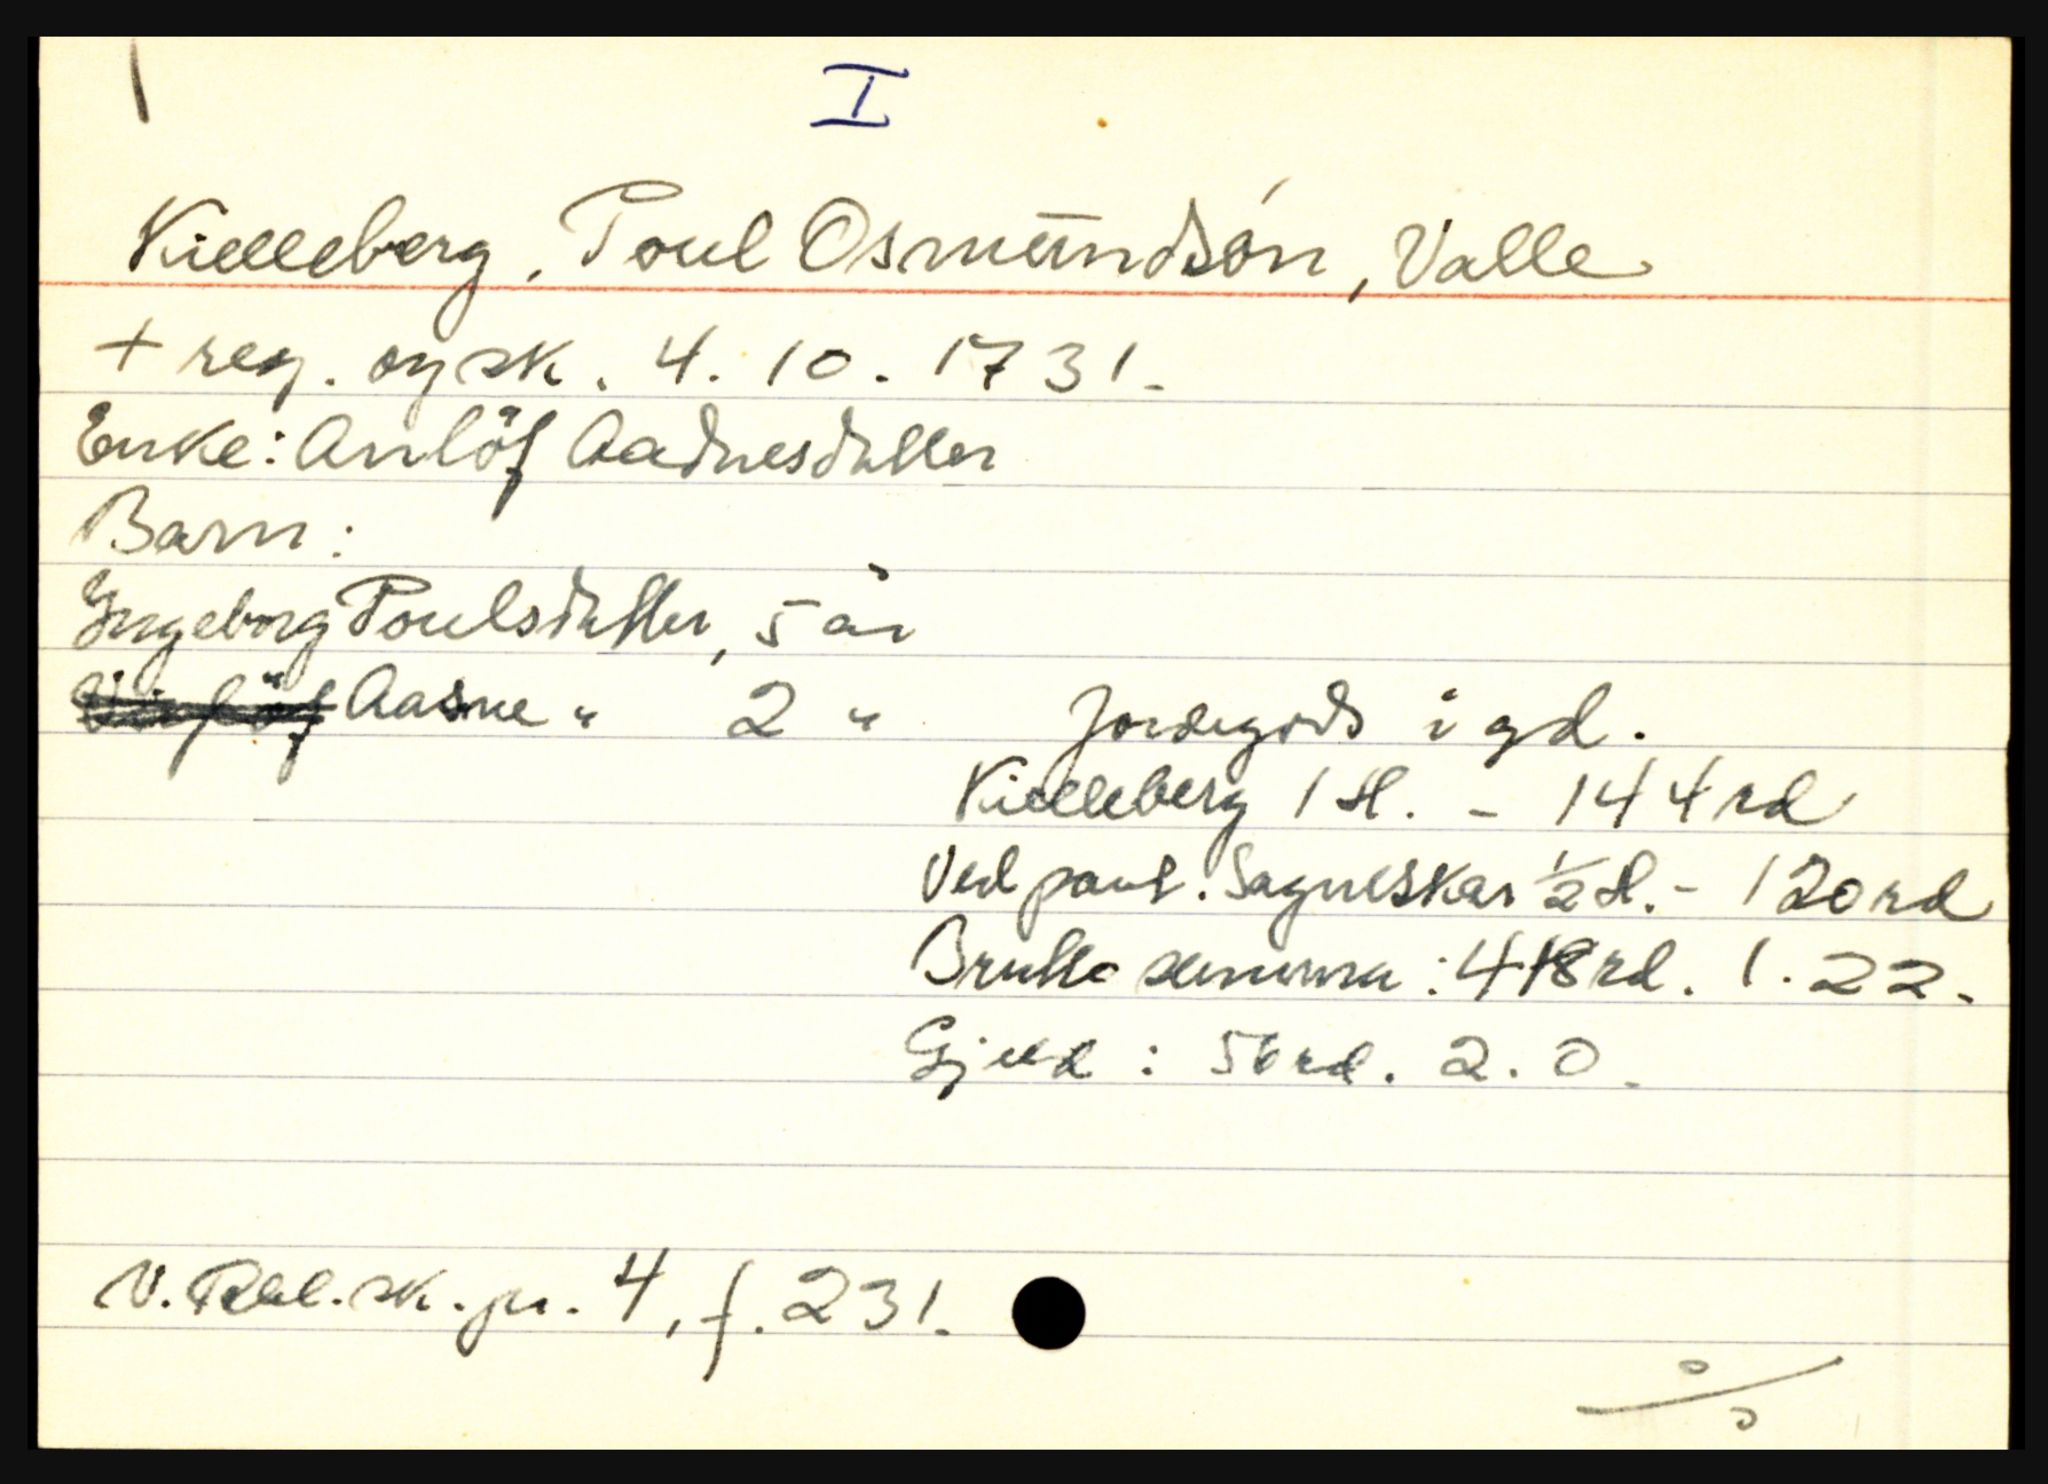 I
Kielleberg, Poul Osmundsön, Valle
+ reg. og sk. 4. 10. 1731.
Enke: Anlöf Aadnesdatter
Barn:
Ingeborg Poulsdatter, 5 år
Aasne " 2 "
Jordegods i gd.
Kielleberg 1 H. - 144 rd
Ved pant. Sagneskar ½ H. - 120 rd
Brutto summa: 418 rd. 1. 22.
Gjeld: 56 rd. 2. 0.
V. Rbl. sk. pr. 4, f. 231.